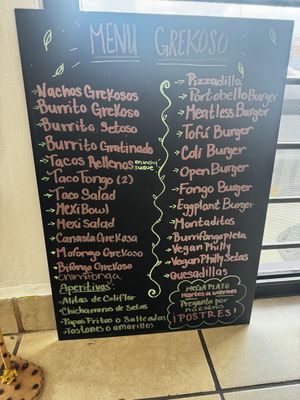 MENU GREKOSO
Nachos Grekosos
Burrito Grekoso
Burrito Setoso
Burrito Gratinado
Tacos Rellenos
Taco Fongo (2)
Taco Salad
Mexi Bowl
Mexi Salad
Canasta Grekosa
Mofongo Grekoso
Bifongo Grekoso
Chimifongo
Aperitivos
Alitas de Coliflor
Chicharron de Setas
Papas Fritas o Salteadas
Tostones o amarillos
Pizzadillo
Portobello Burger
Meatless Burger
Tofú Burger
Coli Burger
Open Burger
Fongo Burger
Eggplant Burger
Montaditos
Burrifongo Pleta
Vegan Philly
Vegan Philly Setas
Quesadillas
MEGA PLATO
Martes a viernes
Pregunta por
nuestros
¡POSTRES!